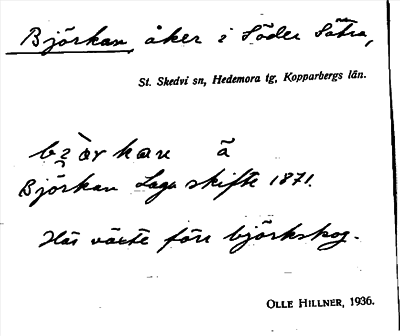 Björkan, åker i Söder Sätra,
St. Skedvi sn, Hedemora tg, Kopparbergs län.
Björkan Laga skifte 1871.
Här växte förr björkskog.
OLLE HILLNER, 1936.